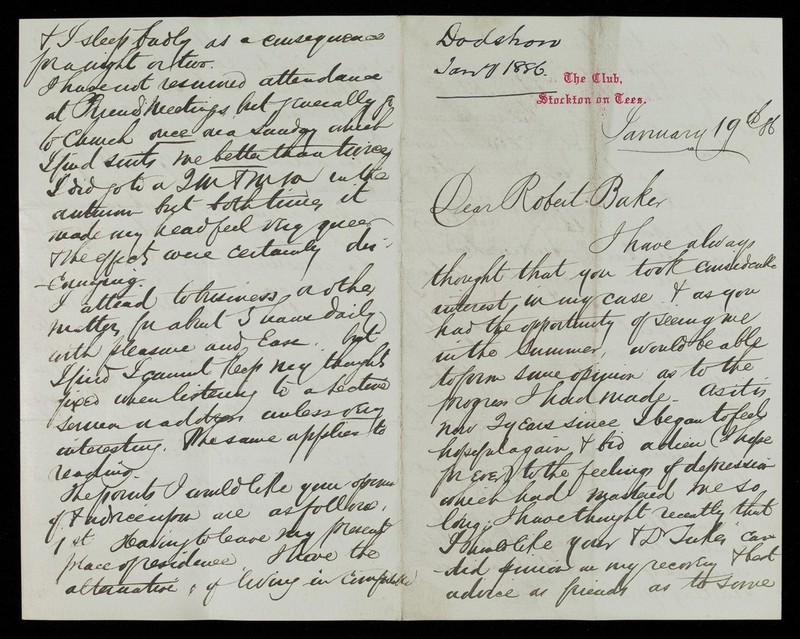 Dodshon
Jan'y 1886
The Club,
Stockton on Tees.
January 19th 86
Dear Robert Baker
I have always
thought that you took considerable
interest in my case & as you
had the opportunity of seeing me
in the Summer, would be able
to form some opinion as to the
progress I had made - As it is
now 2 years since I began to feel
hopeful again & bid adieu (I hope
for ever) to the feelings of depression
which had marked me so
long, I have thought recently that
I should like your & Dr Tuke's can
-did opinion on my recovery & best
advice as friends as to some
& I sleep badly as a consequence
for a night or two.
I have not resumed attendance
at Friends Meetings but generally go
to Church once on a Sunday which
I find suits me better than twice
I did go to a 2M & M M in the
autumn but both times it
made my head feel very queer
& the effects were certainly dis-
-couraging.
I attend to business or other
matters for about 5 hours daily
with pleasure and Ease. but
I find I cannot keep my thoughts
fixed when listening to a lecture
sermon or address unless very
interesting. The same applies to
reading.
The points I would like your opinion
of & advice upon are as follows.
1st Having to leave my present
place of residence I have the
alternative, of living in comfortable